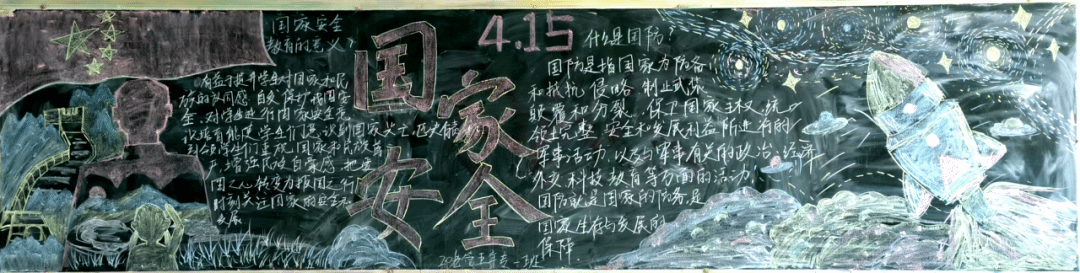 国家安全
教育的意义?
有益于提升学生对国家和民
族的认同感 自觉保护祖国安
全,对学生进行国家安全
以培育能使学生们意识到国家兴亡 匹夫有责
重视国家和民族尊
严,增强民族自豪感 把爱
国之心转变为报国之行
时刻关注国家的安全和
发展
国家安全
4.15
什么是国防?
国防是指国家为防备
和抵抗侵略 制止武装
颠覆和分裂,保卫国家主权,统一
领土完整 安全和发展利益所进行的
军事活动,以及与军事有关的政治、经济
外交 科技 教育等方面的活动,
国防就是国家的防务,是
国家生存与发展的
保障.